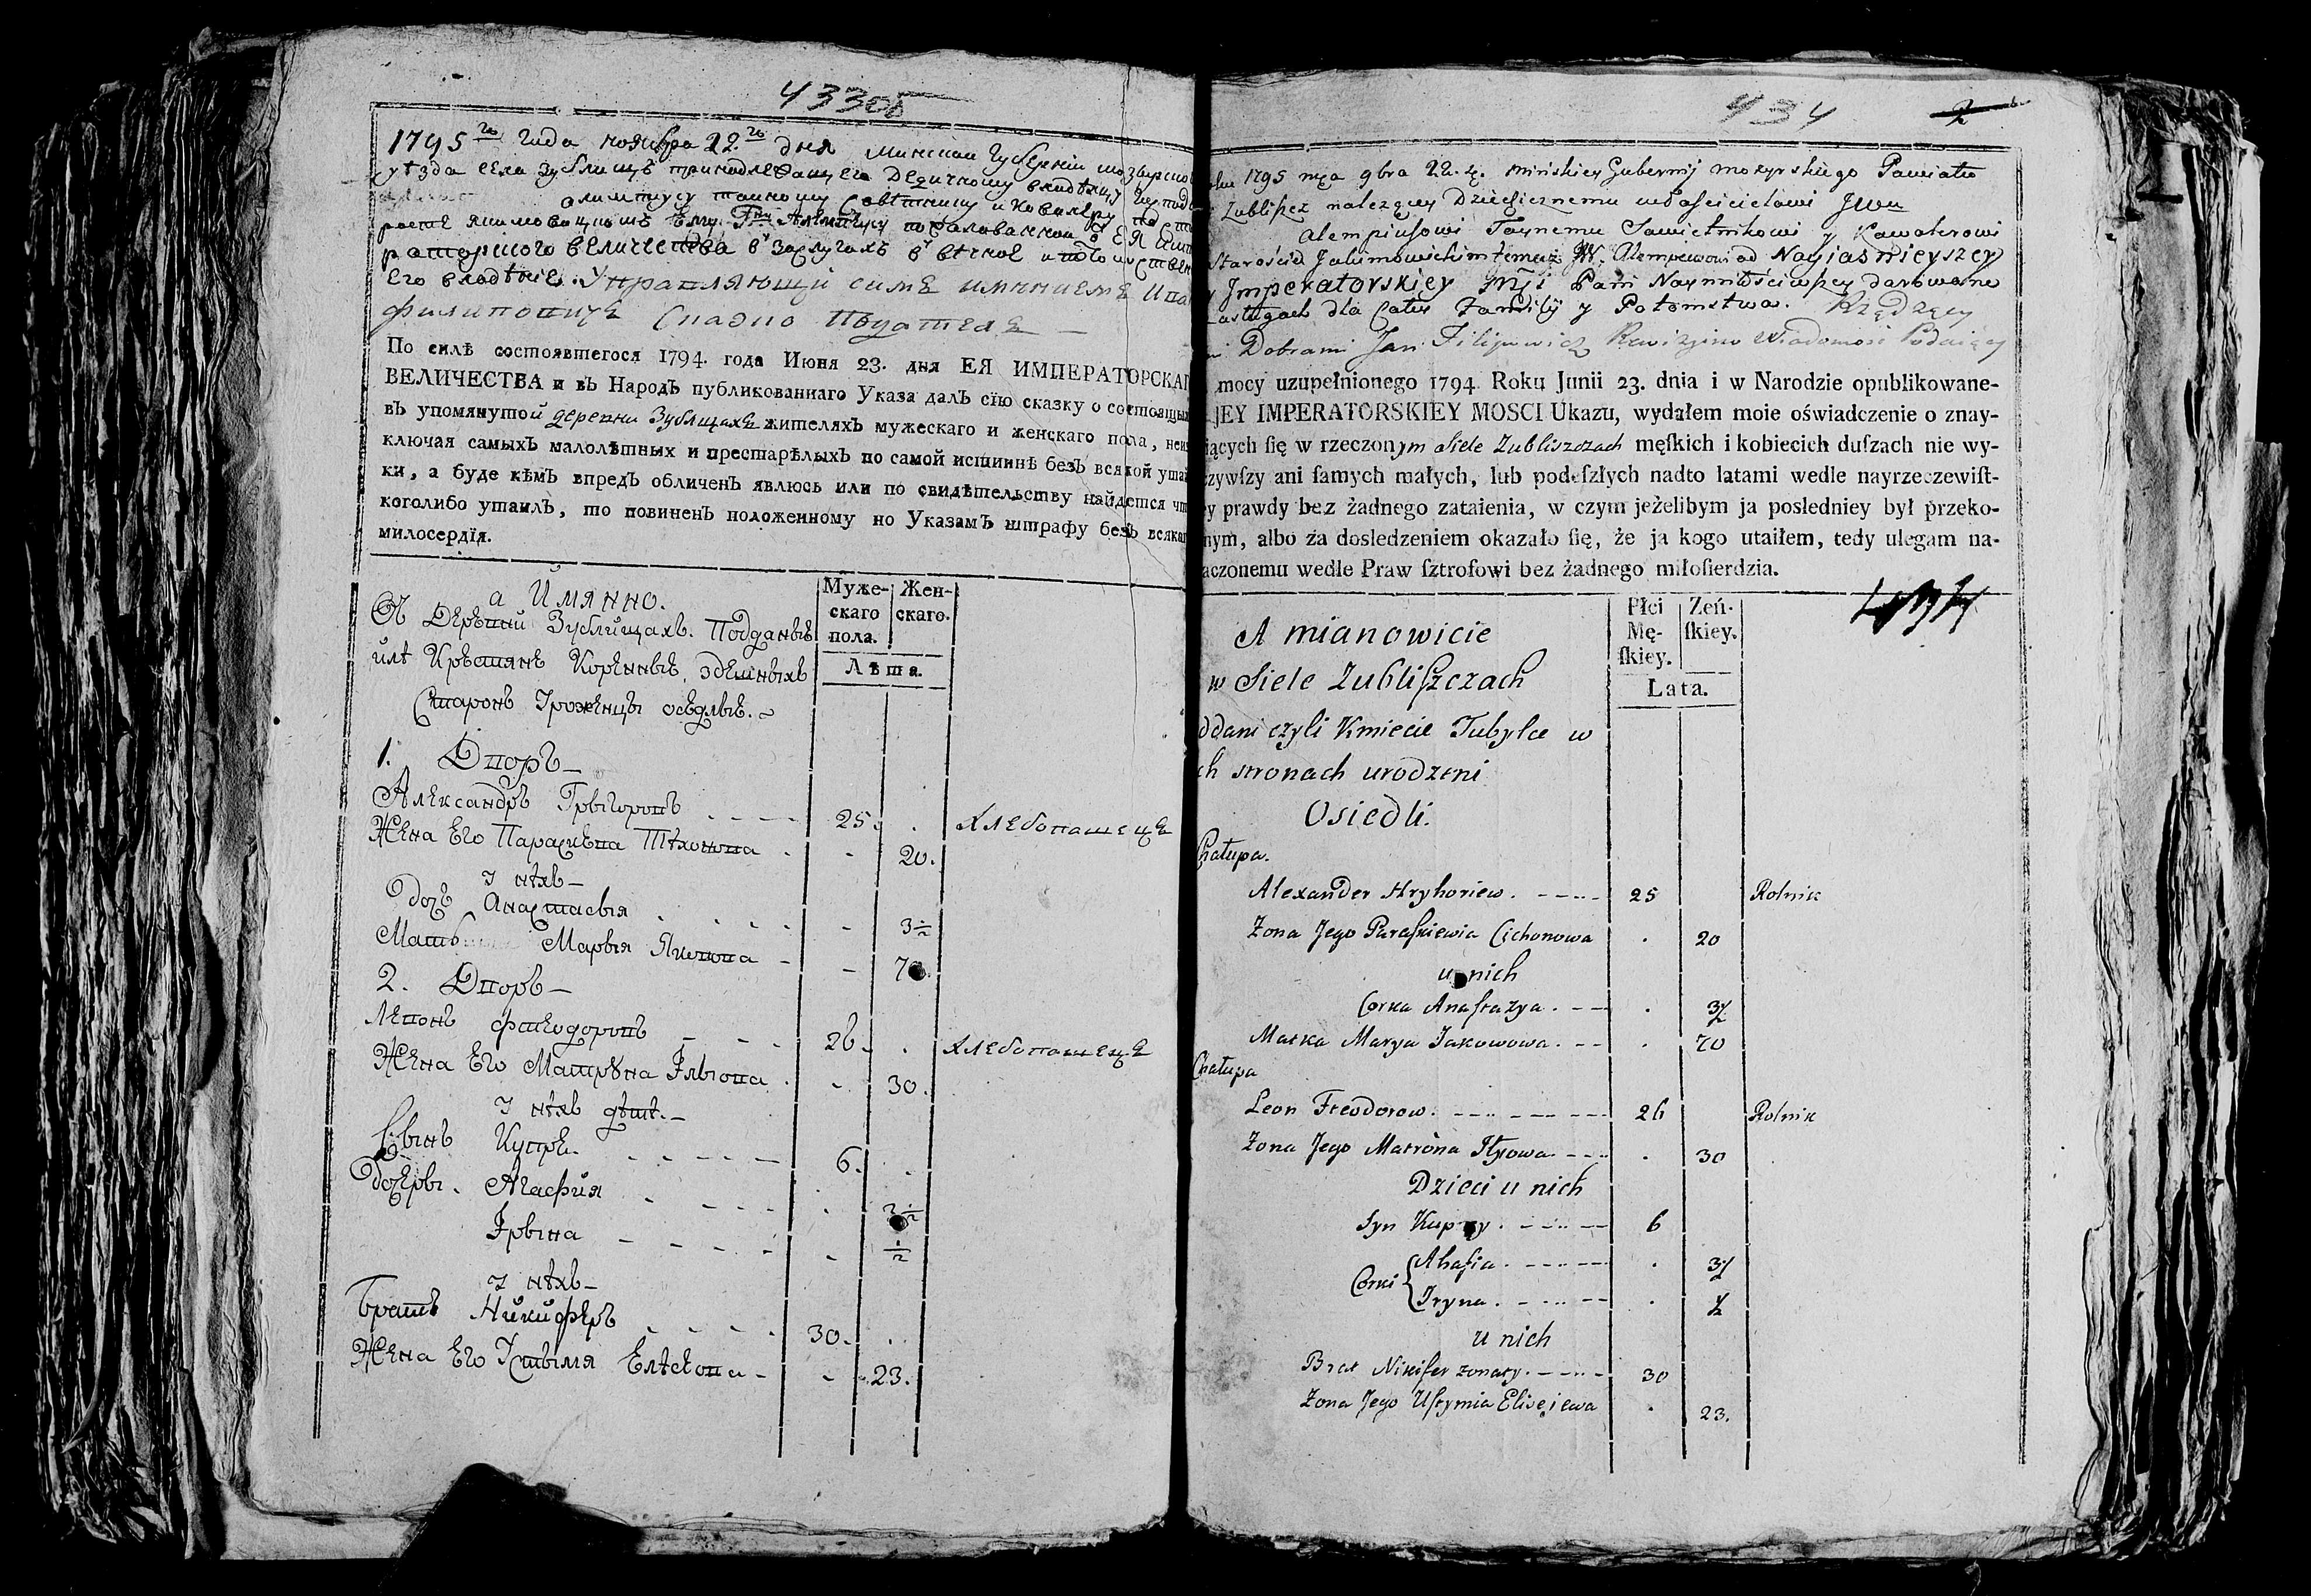 433об
1795го года ноября 22го дня Минской Губернии мозырского
уѣзда села Зублищъ принадлежащего Дедичному владѣлцу
тайному совѣтнику и кавалеру
раторского величества в заслугахъ в вѣчное
Его владѣние. Управляющий симъ имѣниемъ
Филиповичъ
По силѣ состоявшегося 1794. года Июня 23. дня ЕЯ ИМПЕРАТОРСКАГ
ВЕЛИЧЕСТВА и въ Народъ публикованнаго Указа далъ сїю сказку о состоящых
въ упомянутой деревни Зублищахъ жителяхъ мужескаго и женскаго пола, неис
ключая самыхъ малолѣтныхъ и престарѣлыхъ по самой истиннѣ безъ всякой утай
ки, а буде кѣмъ впредъ обличенъ явлюсь или по свидѣтельству найдется чт
коголибо утаилъ, то повиненъ положенному по Указамъ штрафу безъ всякаг
милосердїя.
а Имянно.
Муже-скаго пола.
Жен-скаго.
Лѣта.
В Деревни Зублищахъ. Подданые
илѣ Крѣстяне Коренные, здешныхъ
Старонъ Урожѣнцы осѣдлые.
1. Дворъ
Александръ Грыгоровъ 25. Хлебопашецъ
Жена Его Параскѣва Тѣхонова 20.
У нѣхъ
Дочъ Анастасыя 3½
Мать Марыя Яковова 70.
2. Дворъ
Лѣвонъ Фтеодоровъ 26. Хлебопашецъ
Жена Его Матрѣна Iлыова 30.
У нѣхъ дѣтѣ.
Сынъ Купрѣ. 6.
Дочеры. Агафия
Iрына ½
У нѣхъ
Братъ Никиферъ 30.
Жена Его Устымя Елѣсеева 23.
434 2
1795 mca 9bra 22. d. mińskiey Gubernij mozyrskiego Powiatu
Zubliszcz należącey Dziedzicznemu właścicielowi Jwu
Alempiusowi Taynemu Sowietnikowi y Kawalerowi
Starościa Jakimowickim temuż JW. Alempiusowi od Nayiasnieyszey
Jmperatorskiey Mći Pani Naymiłościwszey darowane
zasługach dla Całey Familij y Potomstwa. Rządzący
Dobrami Jan Filipowicz Rewizyino Wiadomość Podaiący
mocy uzupełnionego 1794 Roku Junii 23. dnia i w Narodzie opublikowane-
JEY IMPERATORSKIEY MOSCI Ukazu, wydałem moie oświadczenie o znay-
iących ſię w rzeczonym Siele Zubliszczach męſkich i kobiecich duſzach nie wy-
zywſzy ani ſamych małych, lub podeſzłych nadto latami wedle nayrzeczewiſt-
y prawdy bez żadnego zataienia, w czym jeżelibym ja posledniey był przeko-
nym, albo za dosledzeniem okazało ſię, że ja kogo utaiłem, tedy ulegam na-
aczonemu wedle Praw ſztrofowi bez żadnego miłoſierdzia.
434
A mianowicie
Płci Mę-ſkiey.
Zeń-ſkiey.
Lata.
w Siele Zubliſzczach
ddani czyli Kmiecie Tubylce w
ch stronach urodzeni
Osiedli.
Chałupa.
Alexander Hryhoriew. 25 Rolnik
Żona Jego Paraſkiewia Cichonowa 20
u nich
Corka Anaſtazya. 3½
Matka Marya Jakowowa. 70
Chałupa
Leon Fteodorow. 26 Rolnik
Żona Jego Matrona Jlyowa. 30
Dzieci u nich
Syn Kupry. 6
Corki Ahafia. 3½
Iryna. ½
u nich
Brat Nikifer żonaty. 30
Żona Jego Uſtymia Eliseiewa 23.